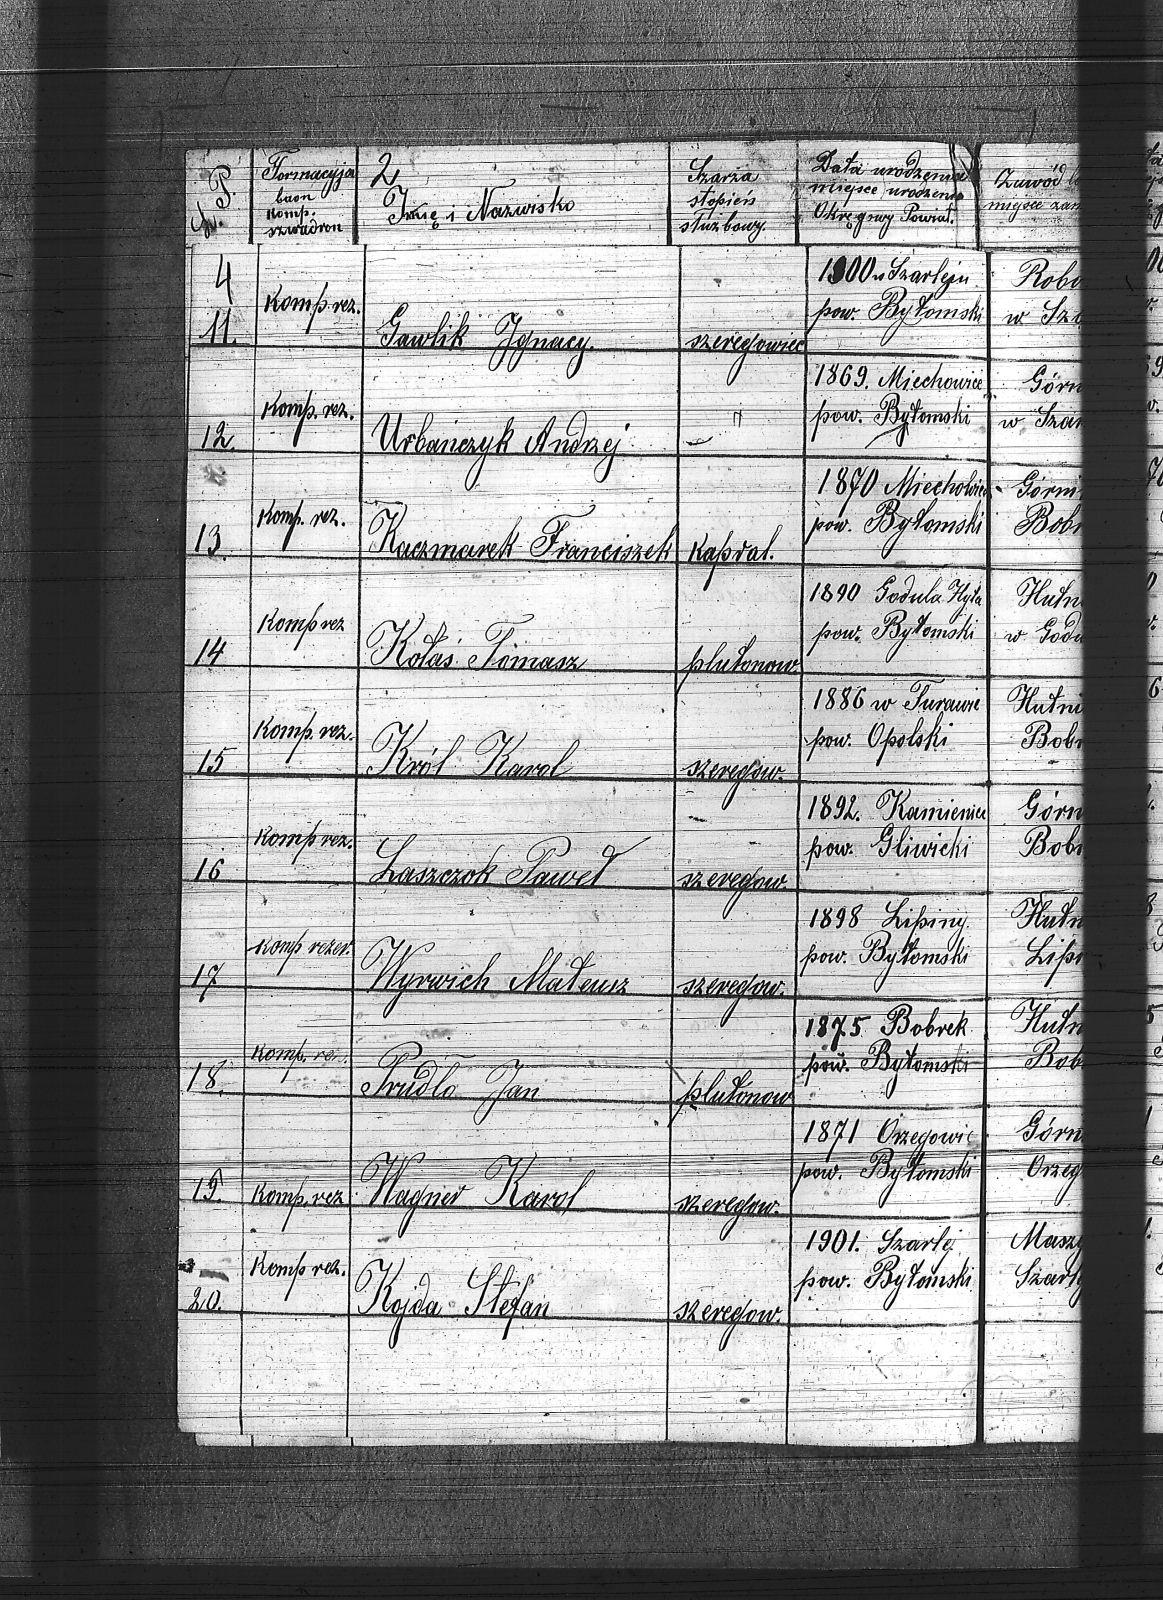 L. P.
Formacyja
baon
komp.
szwadron
2
Imię i Nazwisko
Szarża
stopień
służbowy.
Data urodzenia
miejsce urodzenia
Okręgowy Powiat.
Zawód
miejsce zam
4
11.
Komp. rez.
Gawlik Ignacy.
szeregowiec
1900 w Szarleju
pow. Bytomski
Robo
w Sza
12.
Komp. rez.
Urbańczyk Andrzej
— " —
1869. Miechowice
pow. Bytomski
Górn
w Szar
13.
Komp. rez.
Kaczmarek Franciszek
kapral.
1870 Miechowice
pow. Bytomski
Górni
Bobr
14
Komp rez
Kołaś Tomasz
plutonow
1890 Godula Hyta
pow. Bytomski
Hutn
w Godu
15
Komp. rez.
Król Karol
szeregow.
1886 w Turawie
pow. Opolski
Hutni
Bobr
16
Komp rez.
Laszczok Paweł
szeregow
1892. Kamieniec
pow. Gliwicki
Górn
Bobr
17
Komp rezer.
Wyrwich Mateusz
szeregow.
1898 Lipiny.
pow. Bytomski
Hutn
Lipi
18.
Komp. rez.
Prudlo Jan
plutonow
1875 Bobrek
pow. Bytomski
Hutn
Bob
19.
Komp. rez
Wagner Karol
szeregow.
1871 Orzegowie
pow. Bytomski
Górn
Orzeg
20.
Komp rez.
Kojda Stefan
szeregow.
1901. Szarlej
pow. Bytomski
Masz
Szarlej